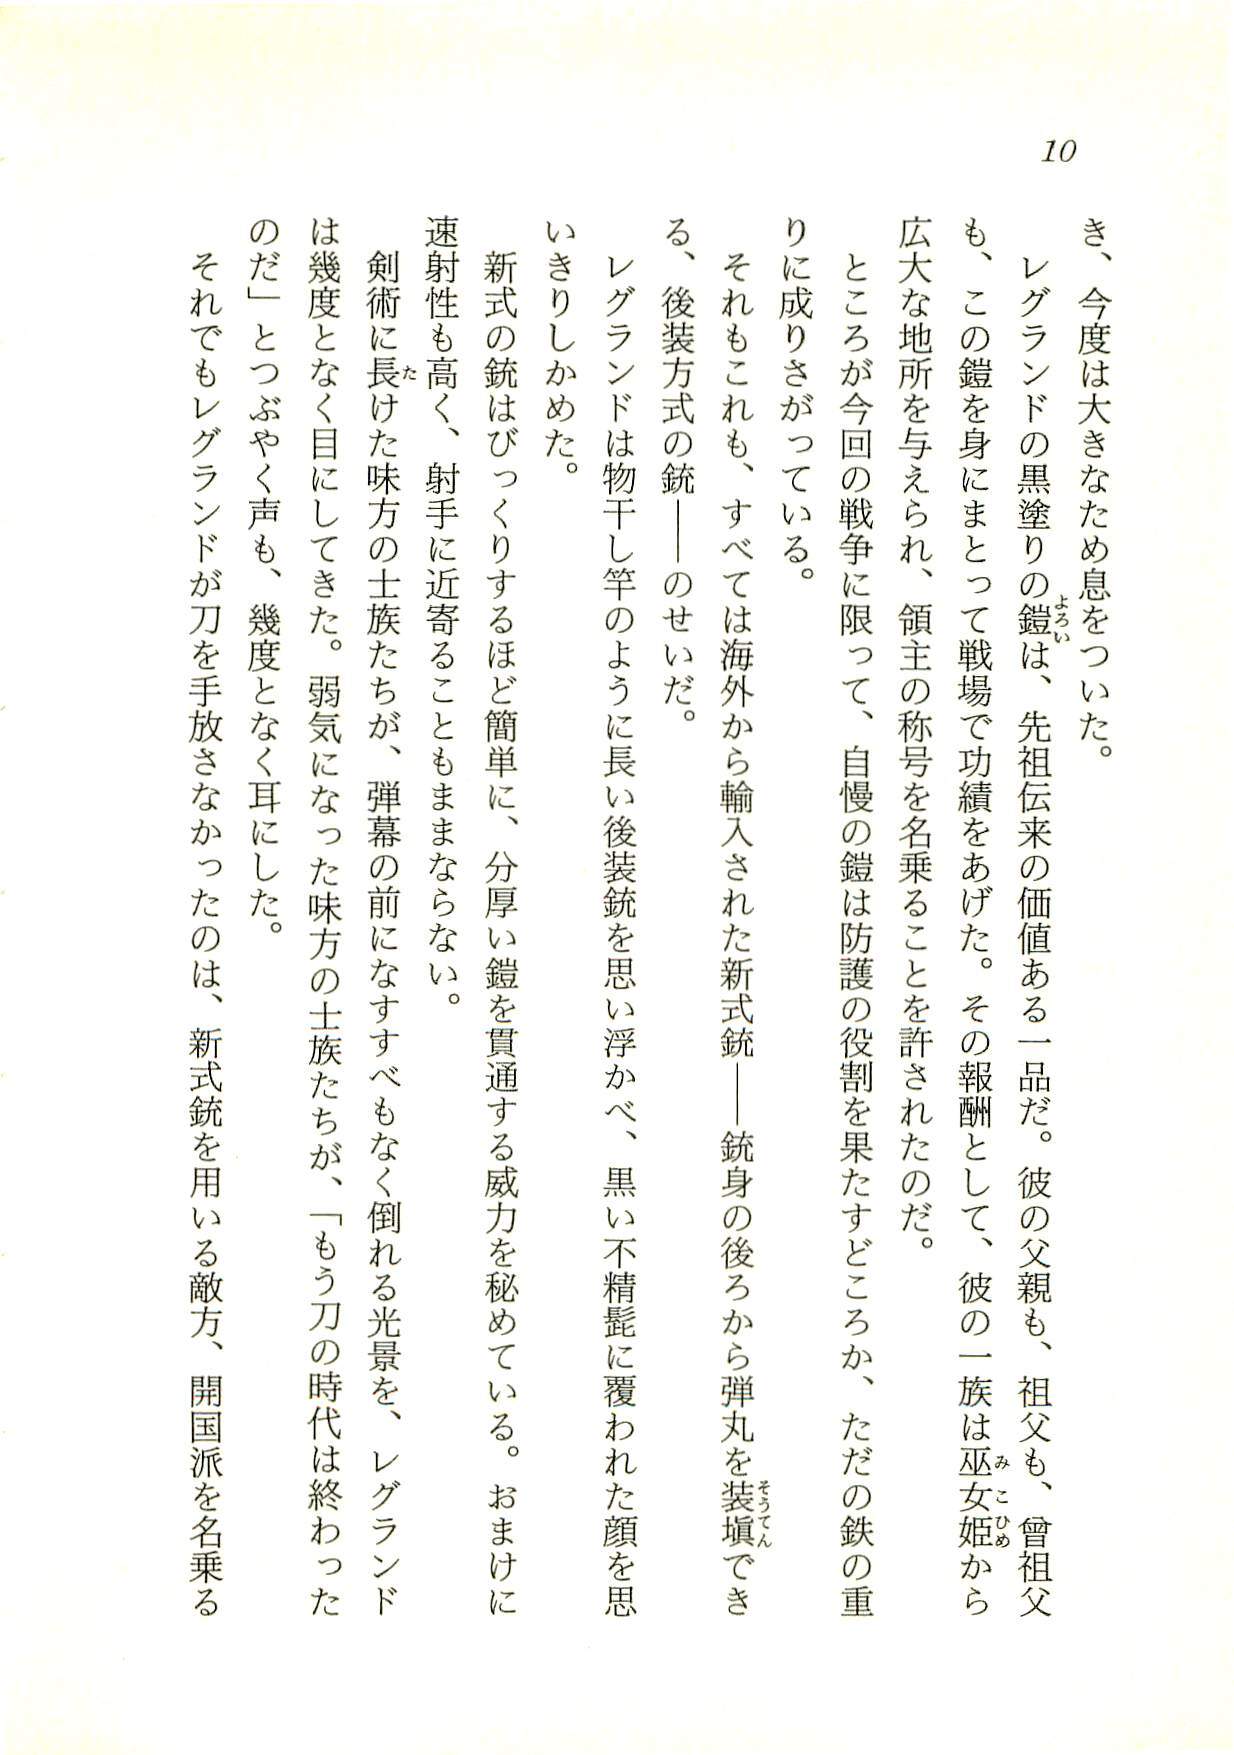 10
き、今度は大きなため息をついた。
　レグランドの黒塗りの鎧は、先祖伝来の価値ある一品だ。彼の父親も、祖父も、曾祖父
も、この鎧を身にまとって戦場で功績をあげた。その報酬として、彼の一族は巫女姫から
広大な地所を与えられ、領主の称号を名乗ることを許されたのだ。
　ところが今回の戦争に限って、自慢の鎧は防護の役割を果たすどころか、ただの鉄の重
りに成りさがっている。
　それもこれも、すべては海外から輸入された新式銃――銃身の後ろから弾丸を装塡でき
る、後装方式の銃――のせいだ。
　レグランドは物干し竿のように長い後装銃を思い浮かべ、黒い不精髭に覆われた顔を思
いきりしかめた。
　新式の銃はびっくりするほど簡単に、分厚い鎧を貫通する威力を秘めている。おまけに
速射性も高く、射手に近寄ることもままならない。
　剣術に長けた味方の士族たちが、弾幕の前になすすべもなく倒れる光景を、レグランド
は幾度となく目にしてきた。弱気になった味方の士族たちが、「もう刀の時代は終わった
のだ」とつぶやく声も、幾度となく耳にした。
　それでもレグランドが刀を手放さなかったのは、新式銃を用いる敵方、開国派を名乗る